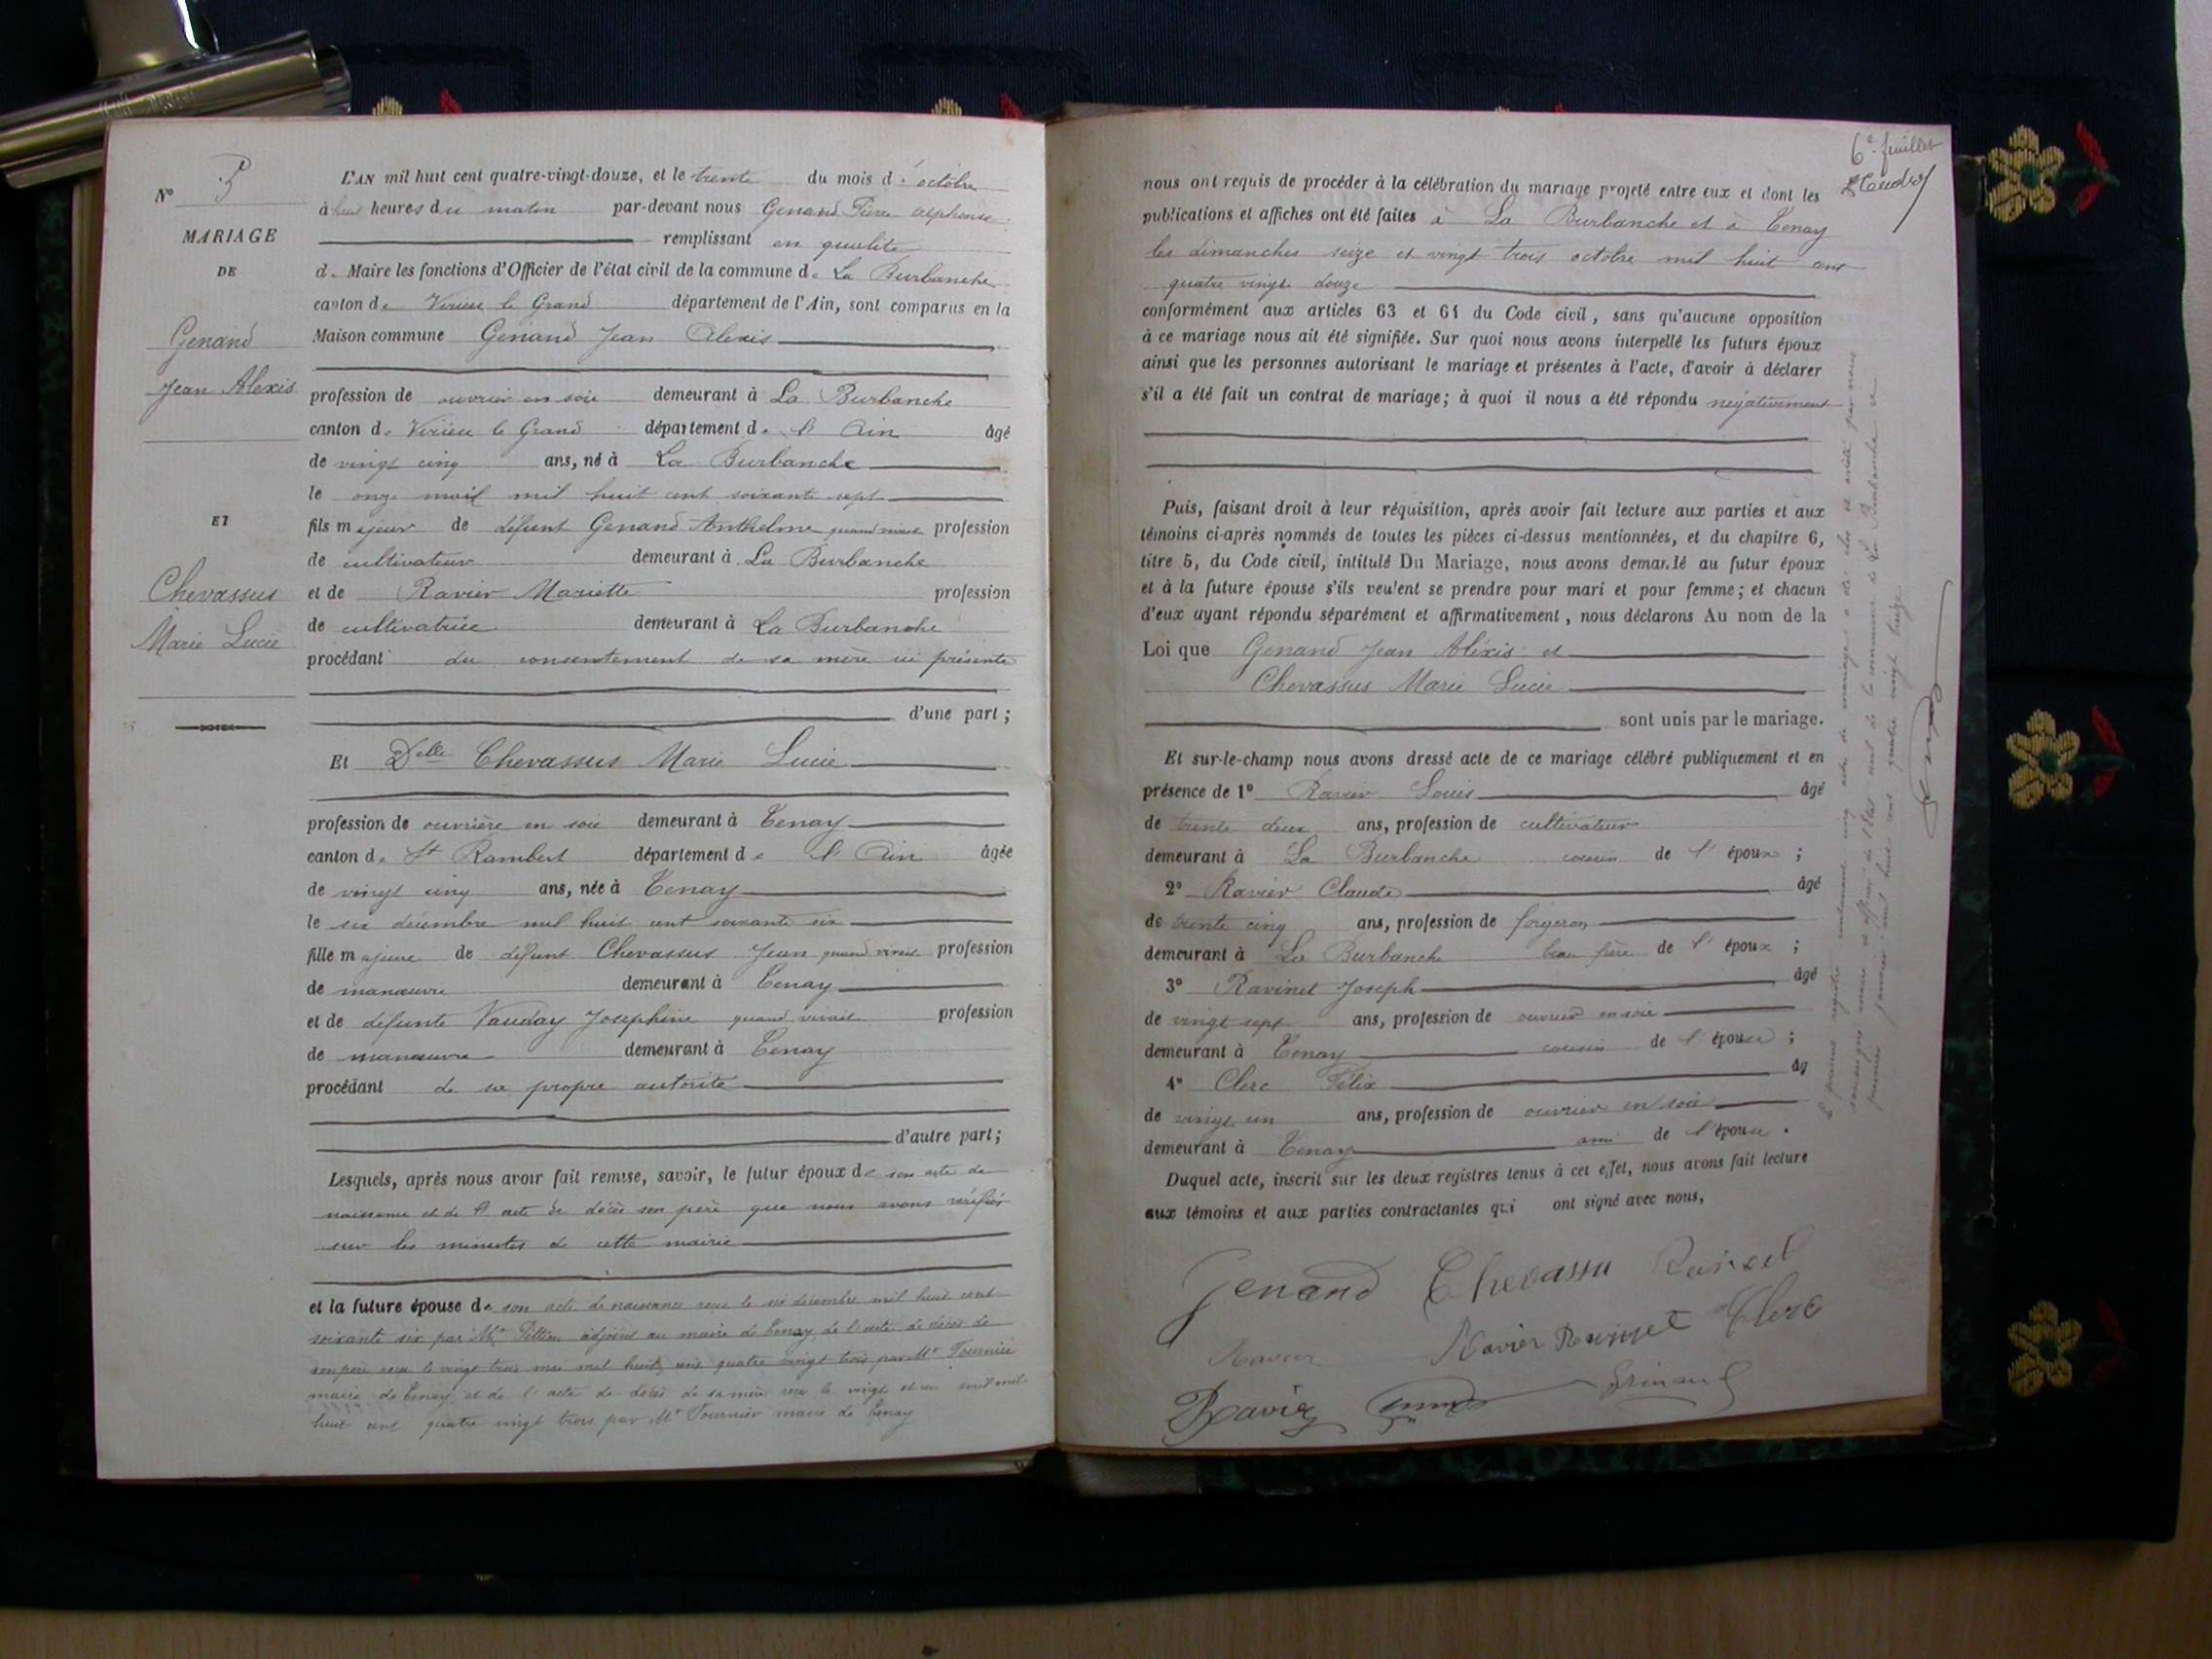 N° 5
MARIAGE
DE
Genand
Jean Alexis
ET
Chevassus
Marie Lucie
L'AN mil huit cent quatre-vingt-douze, et le trente du mois d'octobre
à huit heures du matin par-devant nous Genand Pierre Alphonse
remplissant en qualité
de Maire les fonctions d'Officier de l'état civil de la commune de La Burbanche
canton de Virieu le Grand département de l'Ain, sont comparus en la
Maison commune Genand Jean Alexis
profession de ouvrier en soie demeurant à La Burbanche
canton de Virieu le Grand département de l'Ain âgé
de vingt cinq ans, né à La Burbanche
le onze mai mil huit cent soixante sept
fils majeur de défunt Genand Anthelme quand vivait profession
de cultivateur demeurant à La Burbanche
et de Ravier Mariette profession
de cultivatrice demeurant à La Burbanche
procédant du consentement de sa mère ici présente
d'une part ;
Et Delle Chevassus Marie Lucie
profession de ouvrière en soie demeurant à Tenay
canton de St Rambert département de l'Ain âgée
de vingt cinq ans, née à Tenay
le six décembre mil huit cent soixante six
fille majeure de défunt Chevassus Jean quand vivait profession
de manœuvre demeurant à Tenay
et de défunte Vauday Josephine quand vivait profession
de manœuvre demeurant à Tenay
procédant de sa propre autorité
d'autre part ;
Lesquels, après nous avoir fait remise, savoir, le futur époux de son acte de
naissance et de l'acte de décès son père que nous avons vérifiés
sur les minutes de cette mairie
et la future épouse de son acte de naissance reçu le six décembre mil huit cent
soixante six par Mr adjoint au maire de Tenay de l'acte de décès de
son père reçu le vingt trois mai mil huit cent quatre vingt trois par Mr Tournier
maire de Tenay et de l'acte de décès de sa mère reçu le vingt et un août mil
huit cent quatre vingt trois par Mr Tournier maire de Tenay
6e feuillet
nous ont requis de procéder à la célébration du mariage projeté entre eux et dont les
publications et affiches ont été faites à La Burbanche et à Tenay
les dimanches seize et vingt trois octobre mil huit cent
quatre vingt douze
conformément aux articles 63 et 64 du Code civil, sans qu'aucune opposition
à ce mariage nous ait été signifiée. Sur quoi nous avons interpellé les futurs époux
ainsi que les personnes autorisant le mariage et présentes à l'acte, d'avoir à déclarer
s'il a été fait un contrat de mariage ; à quoi il nous a été répondu négativement
Puis, faisant droit à leur réquisition, après avoir fait lecture aux parties et aux
témoins ci-après nommés de toutes les pièces ci-dessus mentionnées, et du chapitre 6,
titre 5, du Code civil, intitulé Du Mariage, nous avons demandé au futur époux
et à la future épouse s'ils veulent se prendre pour mari et pour femme ; et chacun
d'eux ayant répondu séparément et affirmativement, nous déclarons Au nom de la
Loi que Genand Jean Aléxis et
Chevassus Marie Lucie
sont unis par le mariage.
Et sur-le-champ nous avons dressé acte de ce mariage célébré publiquement et en
présence de 1° Ravier Louis âgé
de trente deux ans, profession de cultivateur
demeurant à La Burbanche cousin de l'époux ;
2° Ravier Claude âgé
de trente cinq ans, profession de forgeron
demeurant à La Burbanche beau frère de l'époux ;
3° Ravinet Joseph âgé
de vingt sept ans, profession de ouvrier en soie
demeurant à Tenay cousin de l'épouse ;
4° Clerc Félix âg
de vingt un ans, profession de ouvrier en soie
demeurant à Tenay ami de l'épouse.
Duquel acte, inscrit sur les deux registres tenus à cet effet, nous avons fait lecture
aux témoins et aux parties contractantes qui ont signé avec nous,
Genand Chevassu
Ravier Ravier Ravinet Clerc
Ravier
Le présent registre contenant cinq actes de mariage a été clos et arrêté par nous
maire et officier de l'état civil de la commune de La Burbanche
janvier mil huit cent quatre vingt treize